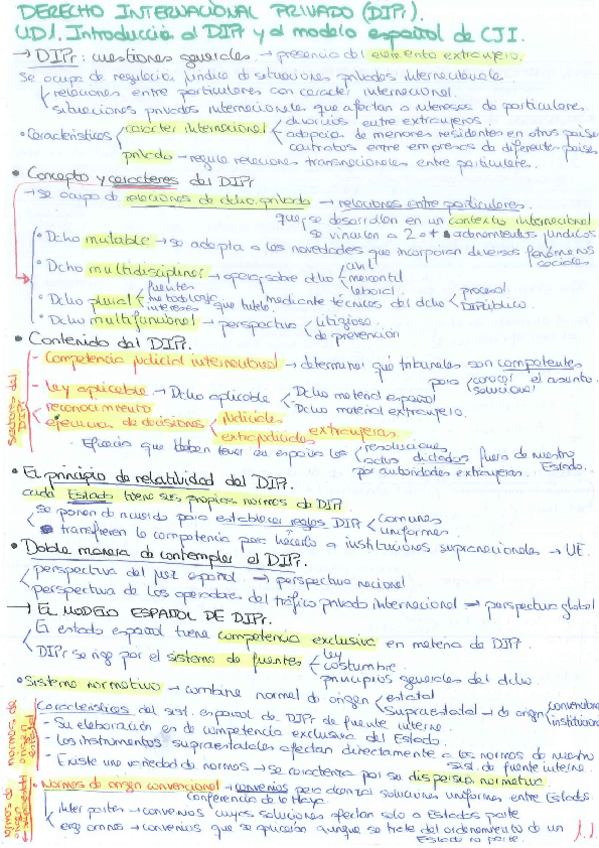 DERECHO INTERNACIONAL PRIVADO (DIPr).
UD1. Introducción al DIPr y al modelo español de CJI.
→ DIPr: cuestiones generales. → presencia del elemento extranjero.
Se ocupa de regulación jurídica de situaciones privadas internacionales
relaciones entre particulares con carácter internacional.
situaciones privadas internacionales que afectan a intereses de particulares.
• Características carácter internacional divorcios entre extranjeros
adopción de menores residentes en otros países
contratos entre empresas de diferentes países
privado → regula relaciones transnacionales entre particulares.
• Concepto y caracteres del DIPr
→ se ocupa de relaciones de dcho. privado → relaciones entre particulares.
que se desarrollan en un contexto internacional
se vinculan a 2 o + ordenamientos jurídicos
• Dcho mutable → se adapta a las novedades que incorporan diversos fenómenos sociales
• Dcho multidisciplinar → opera sobre dcho civil
mercantil
laboral
• Dcho plural fuentes
metodología
intereses que tutela. mediante técnicas del dcho procesal
DIPúblico.
• Dcho multifuncional → perspectiva litigiosa
de prevención
• Contenido del DIPr.
Sectores del DIPr
- Competencia judicial internacional → determinar qué tribunales son competentes
para conocer el asunto.
solucionar
- Ley aplicable → Dcho aplicable Dcho material español
Dcho material extranjero.
- reconocimiento
ejecución de decisiones judiciales
extrajudiciales extranjeras
- Eficacia que deben tener en españa las resoluciones
actos dictados fuera de nuestro Estado.
por autoridades extranjeras.
• El principio de relatividad del DIPr.
cada Estado tiene sus propias normas de DIPr
se ponen de acuerdo para establecer reglas DIPr comunes
uniformes
transfieren la competencia para hacerlo a instituciones supranacionales → UE.
• Doble manera de contemplar el DIPr.
perspectiva del juez español → perspectiva nacional
perspectiva de los operadores del tráfico privado internacional → perspectiva global
→ EL MODELO ESPAÑOL DE DIPr.
El estado español tiene competencia exclusiva en materia de DIPr
DIPr se rige por el sistema de fuentes ley
costumbre.
principios generales del dcho.
• Sistema normativo → combina normas de origen estatal
supraestatal → de origen convencional
institucional
normas de origen estatal
Características del sist. español de DIPr de fuente interna.
- Su elaboración es de competencia exclusiva del Estado.
- Los instrumentos supraestatales afectan directamente a las normas de nuestro
sist. de fuente interna.
- Existe una variedad de normas → se caracteriza por su dispersión normativa.
normas de origen supraestatal
• Normas de origen convencional → convenios para alcanzar soluciones uniformes entre Estados
Conferencia de la Haya.
inter partes → convenios cuyas soluciones afectan solo a Estados parte
erga omnes → convenios que se aplican aunque se trate del ordenamiento de un
Estado no parte.